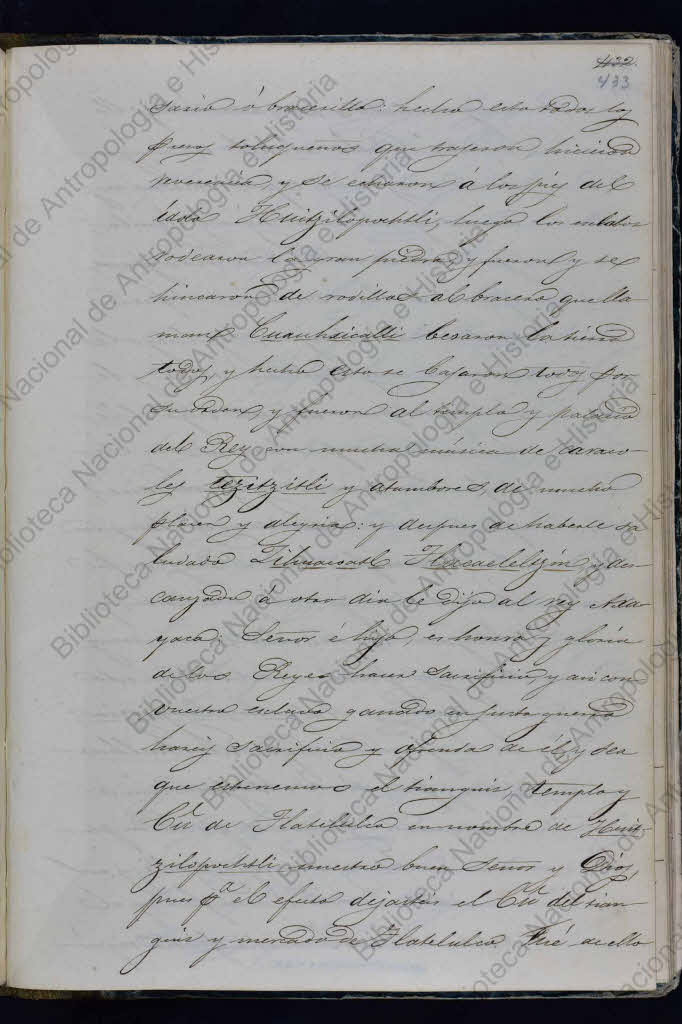 432.
433
sario ó bracerillo: hecho esto todos los
presos toluqueños que trajeron, hicieron
reverencia, y se echaron á los piés del
idolo Huitzilopochtli, luego los
rodearon la gran piedra, y fueron y se
hincaron de rodillas al bracero que lla-
man Cuauhxicalli besaron la tierra
todos, y hecho esto se bajaron todos por
su orden, y fueron al templo y palacio
del Rey con mucha música de caraco-
les tezitzitli y atambores, de mucho
placer y alegria: y despues de haberle sa-
ludado Zihuacoatl Tlacaeleltzin y des-
canzado á otro dia le dijo al rey Axa-
yaca: Señor é hijo, es honra y gloria
de los Reyes hacer sacrificio y asi con
vuestro esclavo ganado en justa guerra
hareis sacrificio y ofrenda de él, y sea
que estrenemos el tianguis, templo y
Cú de Tlatelulco en nombre de Huit-
zilopochtli nuestro buen Señor y Dios,
pues pa el efecto dejastes el Cú del tian-
guis y mercado de Tlatelulco Fué de ello
Biblioteca Nacional de Antropología e Historia